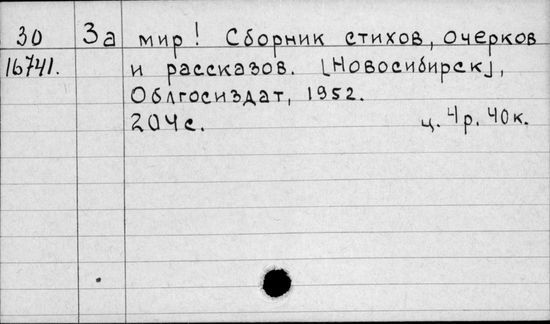 30 За мир! Сборник стихов, очерков
16741. и рассказов. [Новосибирск],
Облгосиздат, 1952.
204с. ц. 4р. 40к.